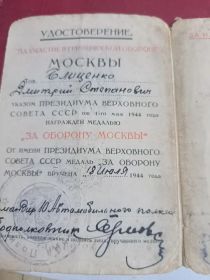 УДОСТОВЕРЕНИЕ
"ЗА УЧАСТИЕ В ГЕРОИЧЕСКОЙ ОБОРОНЕ
МОСКВЫ
Тов. Блищенко
Дмитрий Степанович
УКАЗОМ ПРЕЗИДИУМА ВЕРХОВНОГО
СОВЕТА СССР от 1-го мая 1944 года
НАГРАЖДЕН МЕДАЛЬЮ
"ЗА ОБОРОНУ МОСКВЫ"
ОТ ИМЕНИ ПРЕЗИДИУМА ВЕРХОВНОГО
СОВЕТА СССР МЕДАЛЬ "ЗА ОБОРОНУ
МОСКВЫ" ВРУЧЕНА 18 Июля 1944 года
10 Автомобильного полка
подполковник